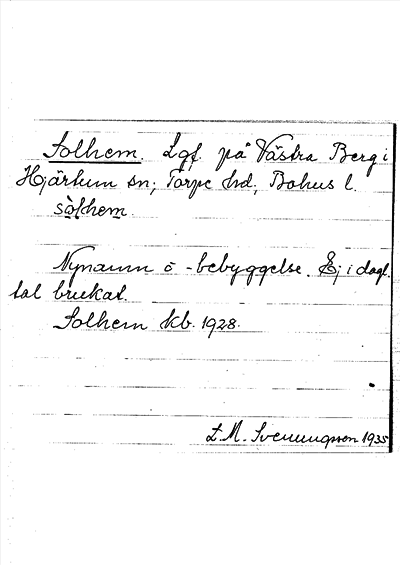 Solhem. Lgf. på Västra Berg i
Hjärtum sn; Torpe hd; Bohus l.
sòlhem.
Nynamn o -bebyggelse. Ej i dagl.
tal brukat.
Solhem kb. 1928.
L M. Svenungsson 1935